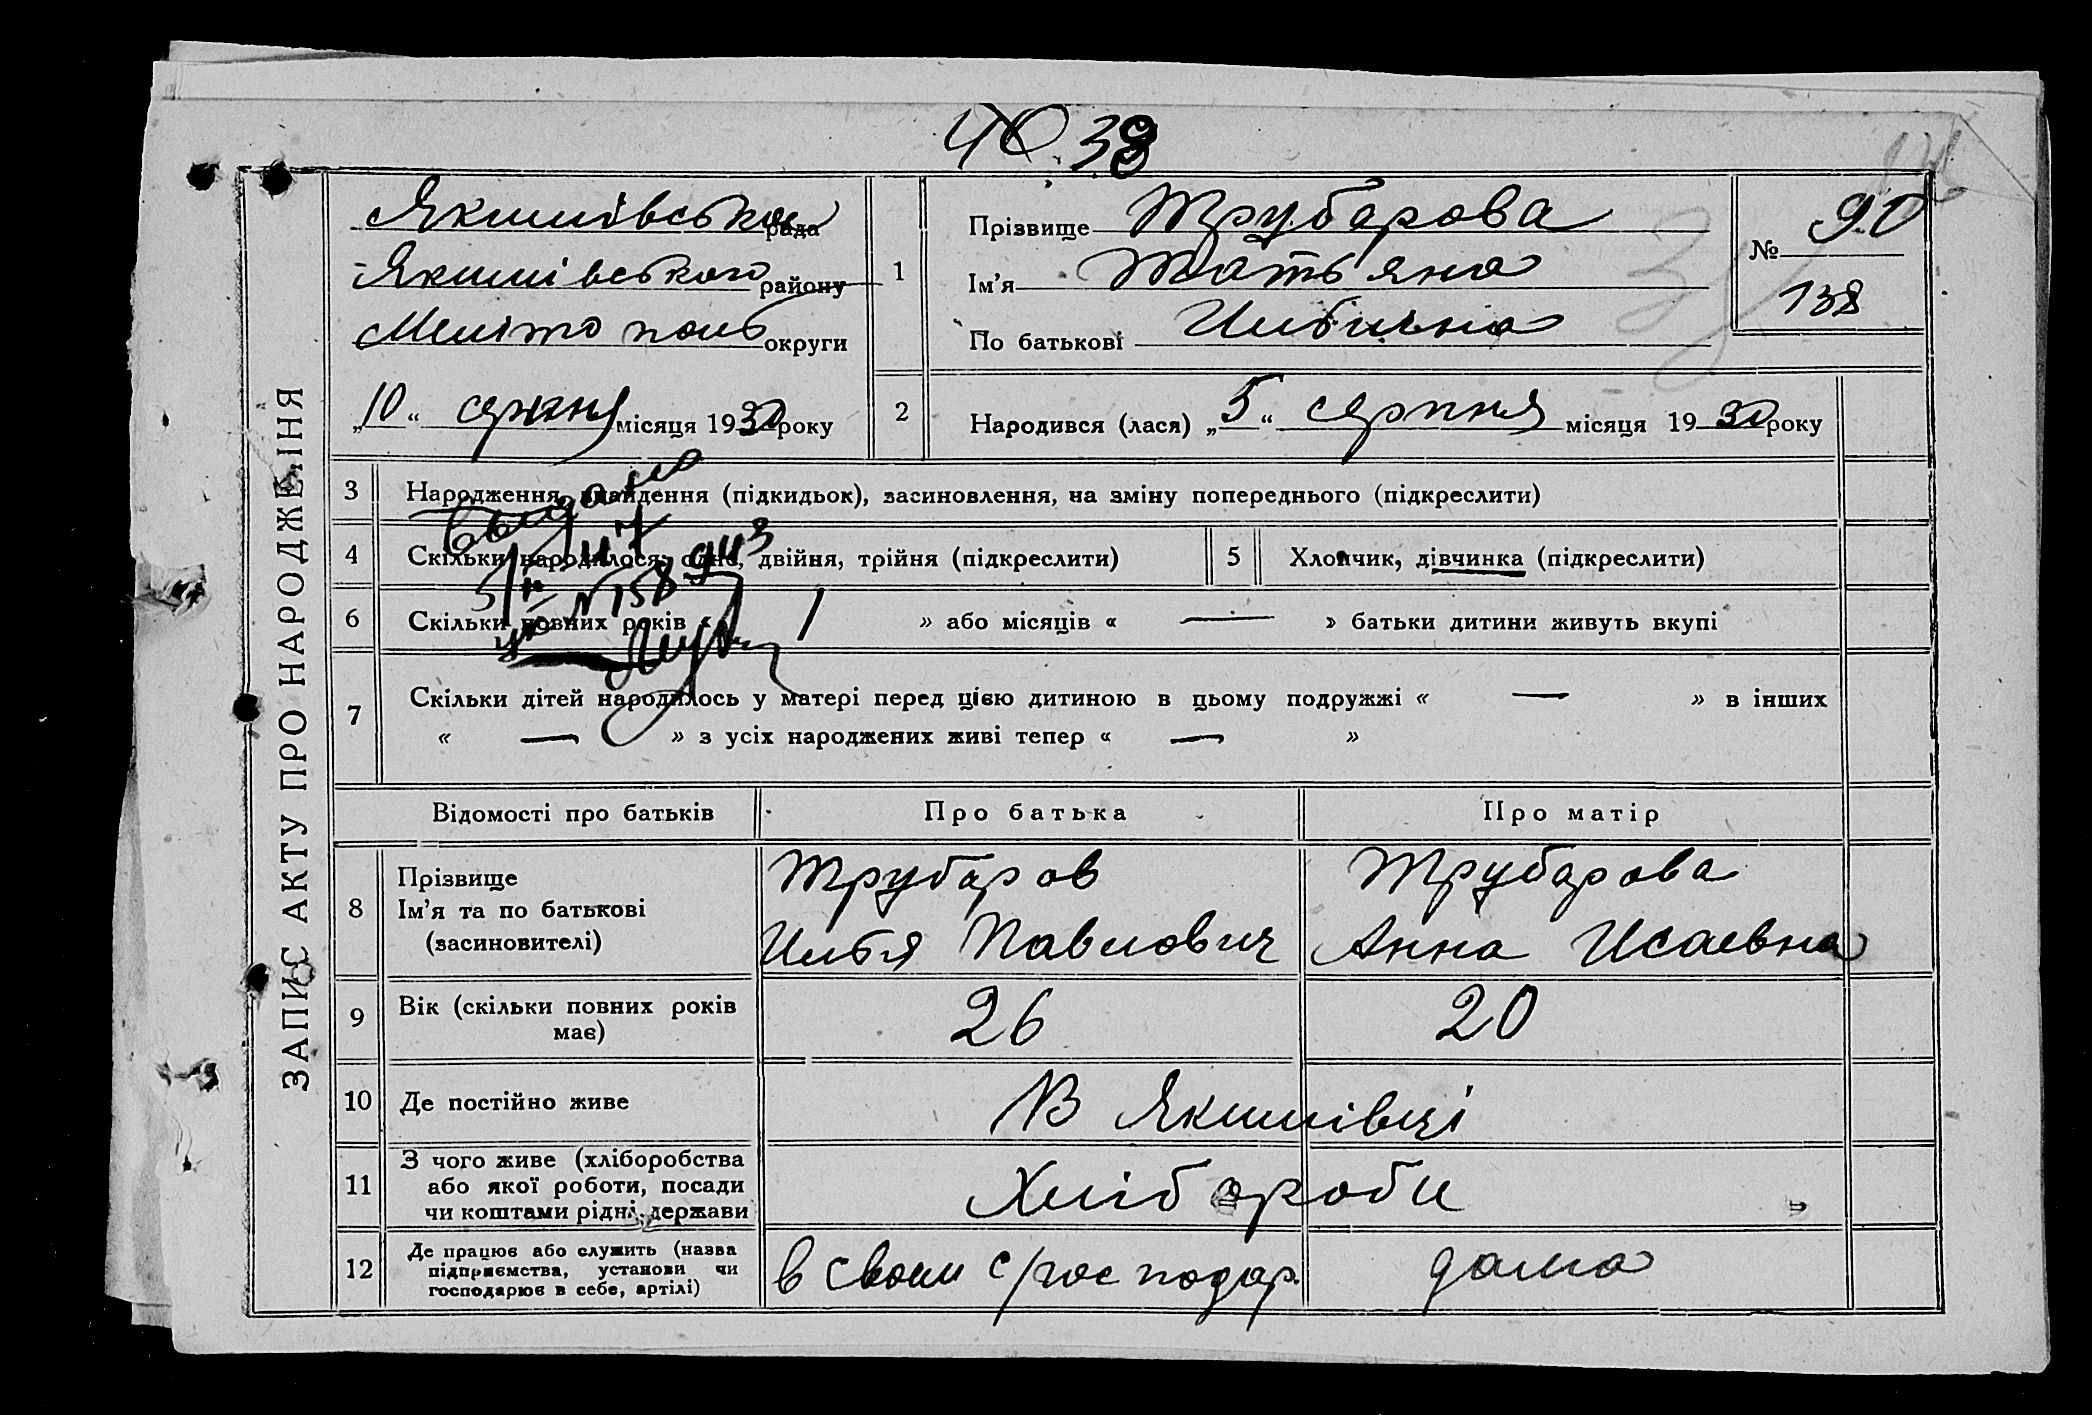 40 38
Якимівська рада
Якимівського району
Мелітополь округи
„10“ серпня місяця 1930 року
1
Прізвище Трубарова
Ім'я Татьяна
По батькові Ильинына
№ 90
138
2
Народився (лася) „5“ серпня місяця 1930 року
ЗАПИС АКТУ ПРО НАРОДЖЕННЯ
3 Народження, знайдення (підкидьок), засиновлення, на зміну попереднього (підкреслити)
4 Скільки народилося: одне, двійня, трійня (підкреслити)
5 Хлопчик, дівчинка (підкреслити)
6 Скільки повних років « 1 » або місяців « — » батьки дитини живуть вкупі
7 Скільки дітей народилось у матері перед цією дитиною в цьому подружжі « — » в інших
« — » з усіх народжених живі тепер « — »
Відомості про батьків Про батька Про матір
8 Прізвище
Ім'я та по батькові
(засиновителі)
Трубаров
Илья Павлович
Трубарова
Анна Исаевна
9 Вік (скільки повних років
має)
26 20
10 Де постійно живе В Якимівці
11 З чого живе (хліборобства
або якої роботи, посади
чи коштами рідні, держави
Хлібороби
12 Де працює або служить (назва
підприємства, установи чи
господарює в себе, артілі)
в своем с/господар. дома